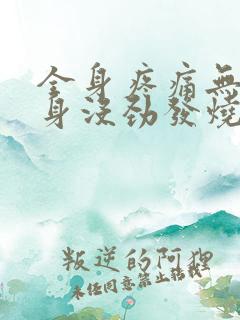 全身疼痛無
身没劲發燒
叛逆的阿狸
未经同意禁止转载